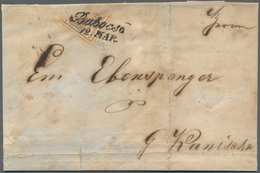 Babocsa
12. MAR.
Em Ebenspanger
p
G Kanischa